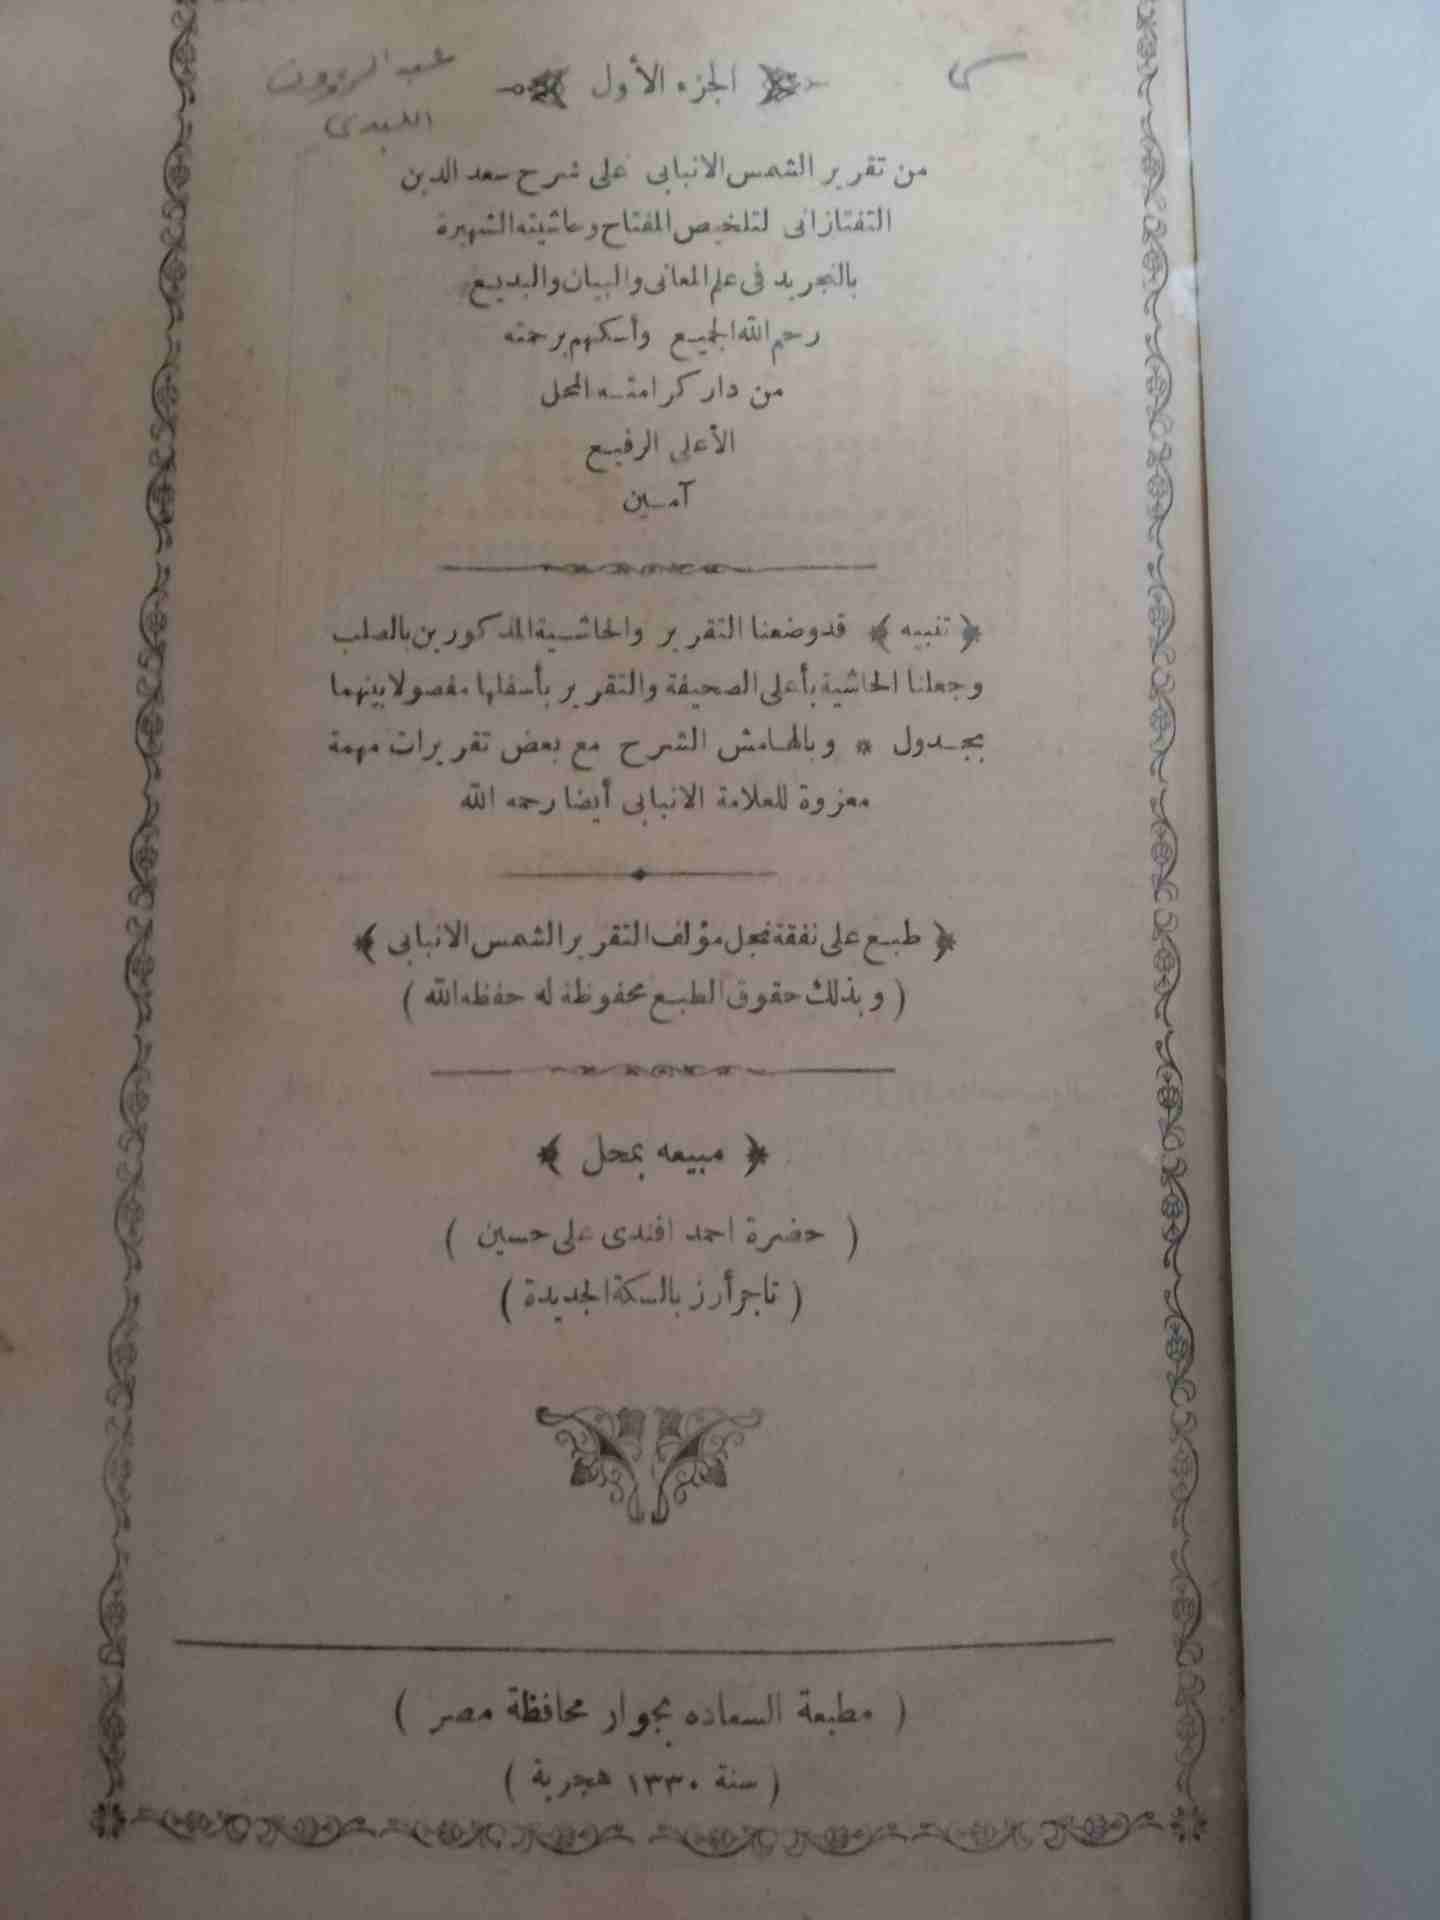 الجزء الأول
عبد الرؤوف
اللبدى
من تقرير الشمس الانبابى على شرح سعد الدين
التفتازانى لتلخيص المفتاح وحاشيته الشهيرة
بالتجريد فى علم المعانى والبيان والبديع
رحم الله الجميع وأسكنهم برحمته
من دار كرامته المحل
الأعلى الرفيع
آمين
تنبيه قد وضعنا التقرير والحاشية المذكورين بالصلب
وجعلنا الحاشية بأعلى الصحيفة والتقرير بأسفلها مفصولا بينهما
بجدول * وبالهامش الشرح مع بعض تقريرات مهمة
معزوة للعلامة الانبابى أيضا رحمه الله
طبع على نفقة نجل مؤلف التقرير الشمس الانبابى
( وبذلك حقوق الطبع محفوظة له حفظه الله )
مبيعه بمحل
( حضرة احمد افندى على حسين )
( تاجر أرز بالسكة الجديدة )
( مطبعة السعاده بجوار محافظة مصر )
( سنة ١٣٣٠ هجرية )